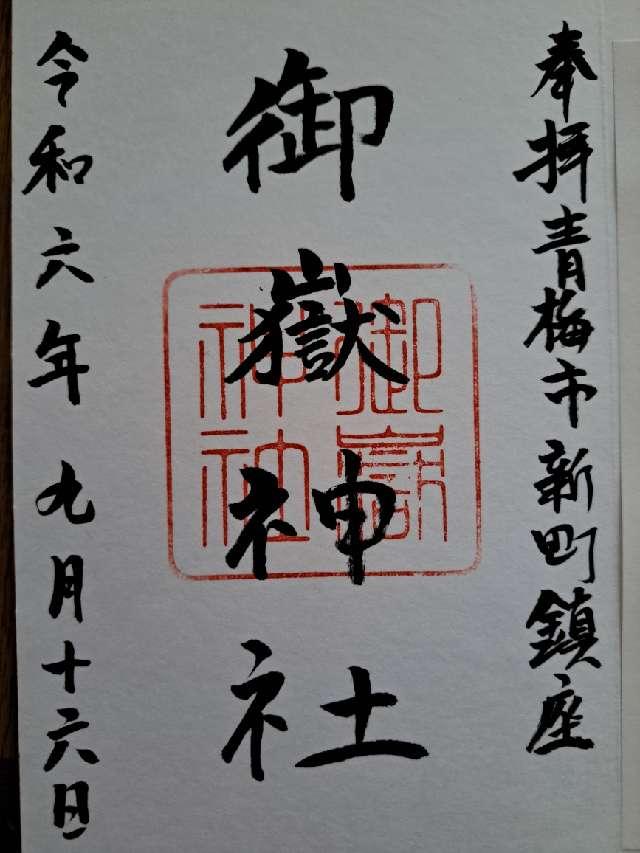 奉拝青梅市新町鎮座
御嶽神社
御嶽
神社
令和六年九月十六日